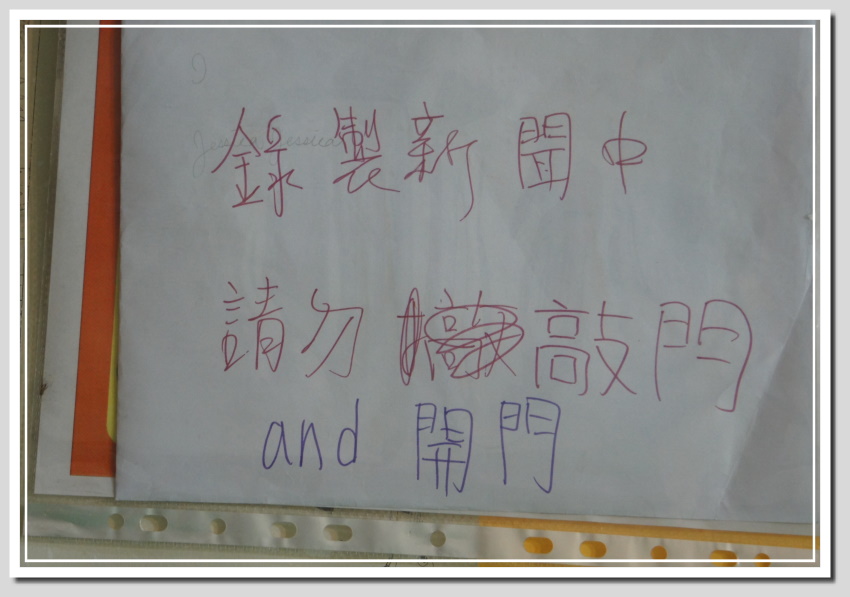 錄製新聞中
請勿敲門
and 開門